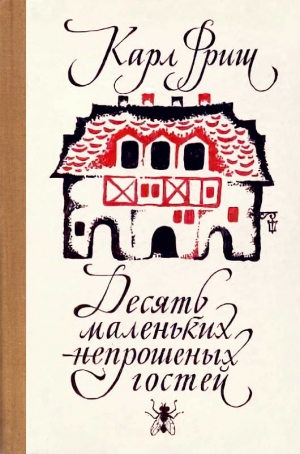 Карл Фриш
Десять
маленьких
непрошеных
гостей